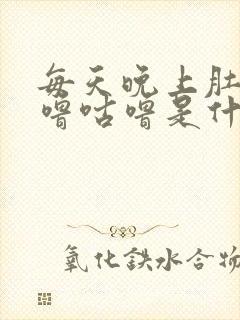 每天晚上肚
噜咕噜是什
氧化铁水合物